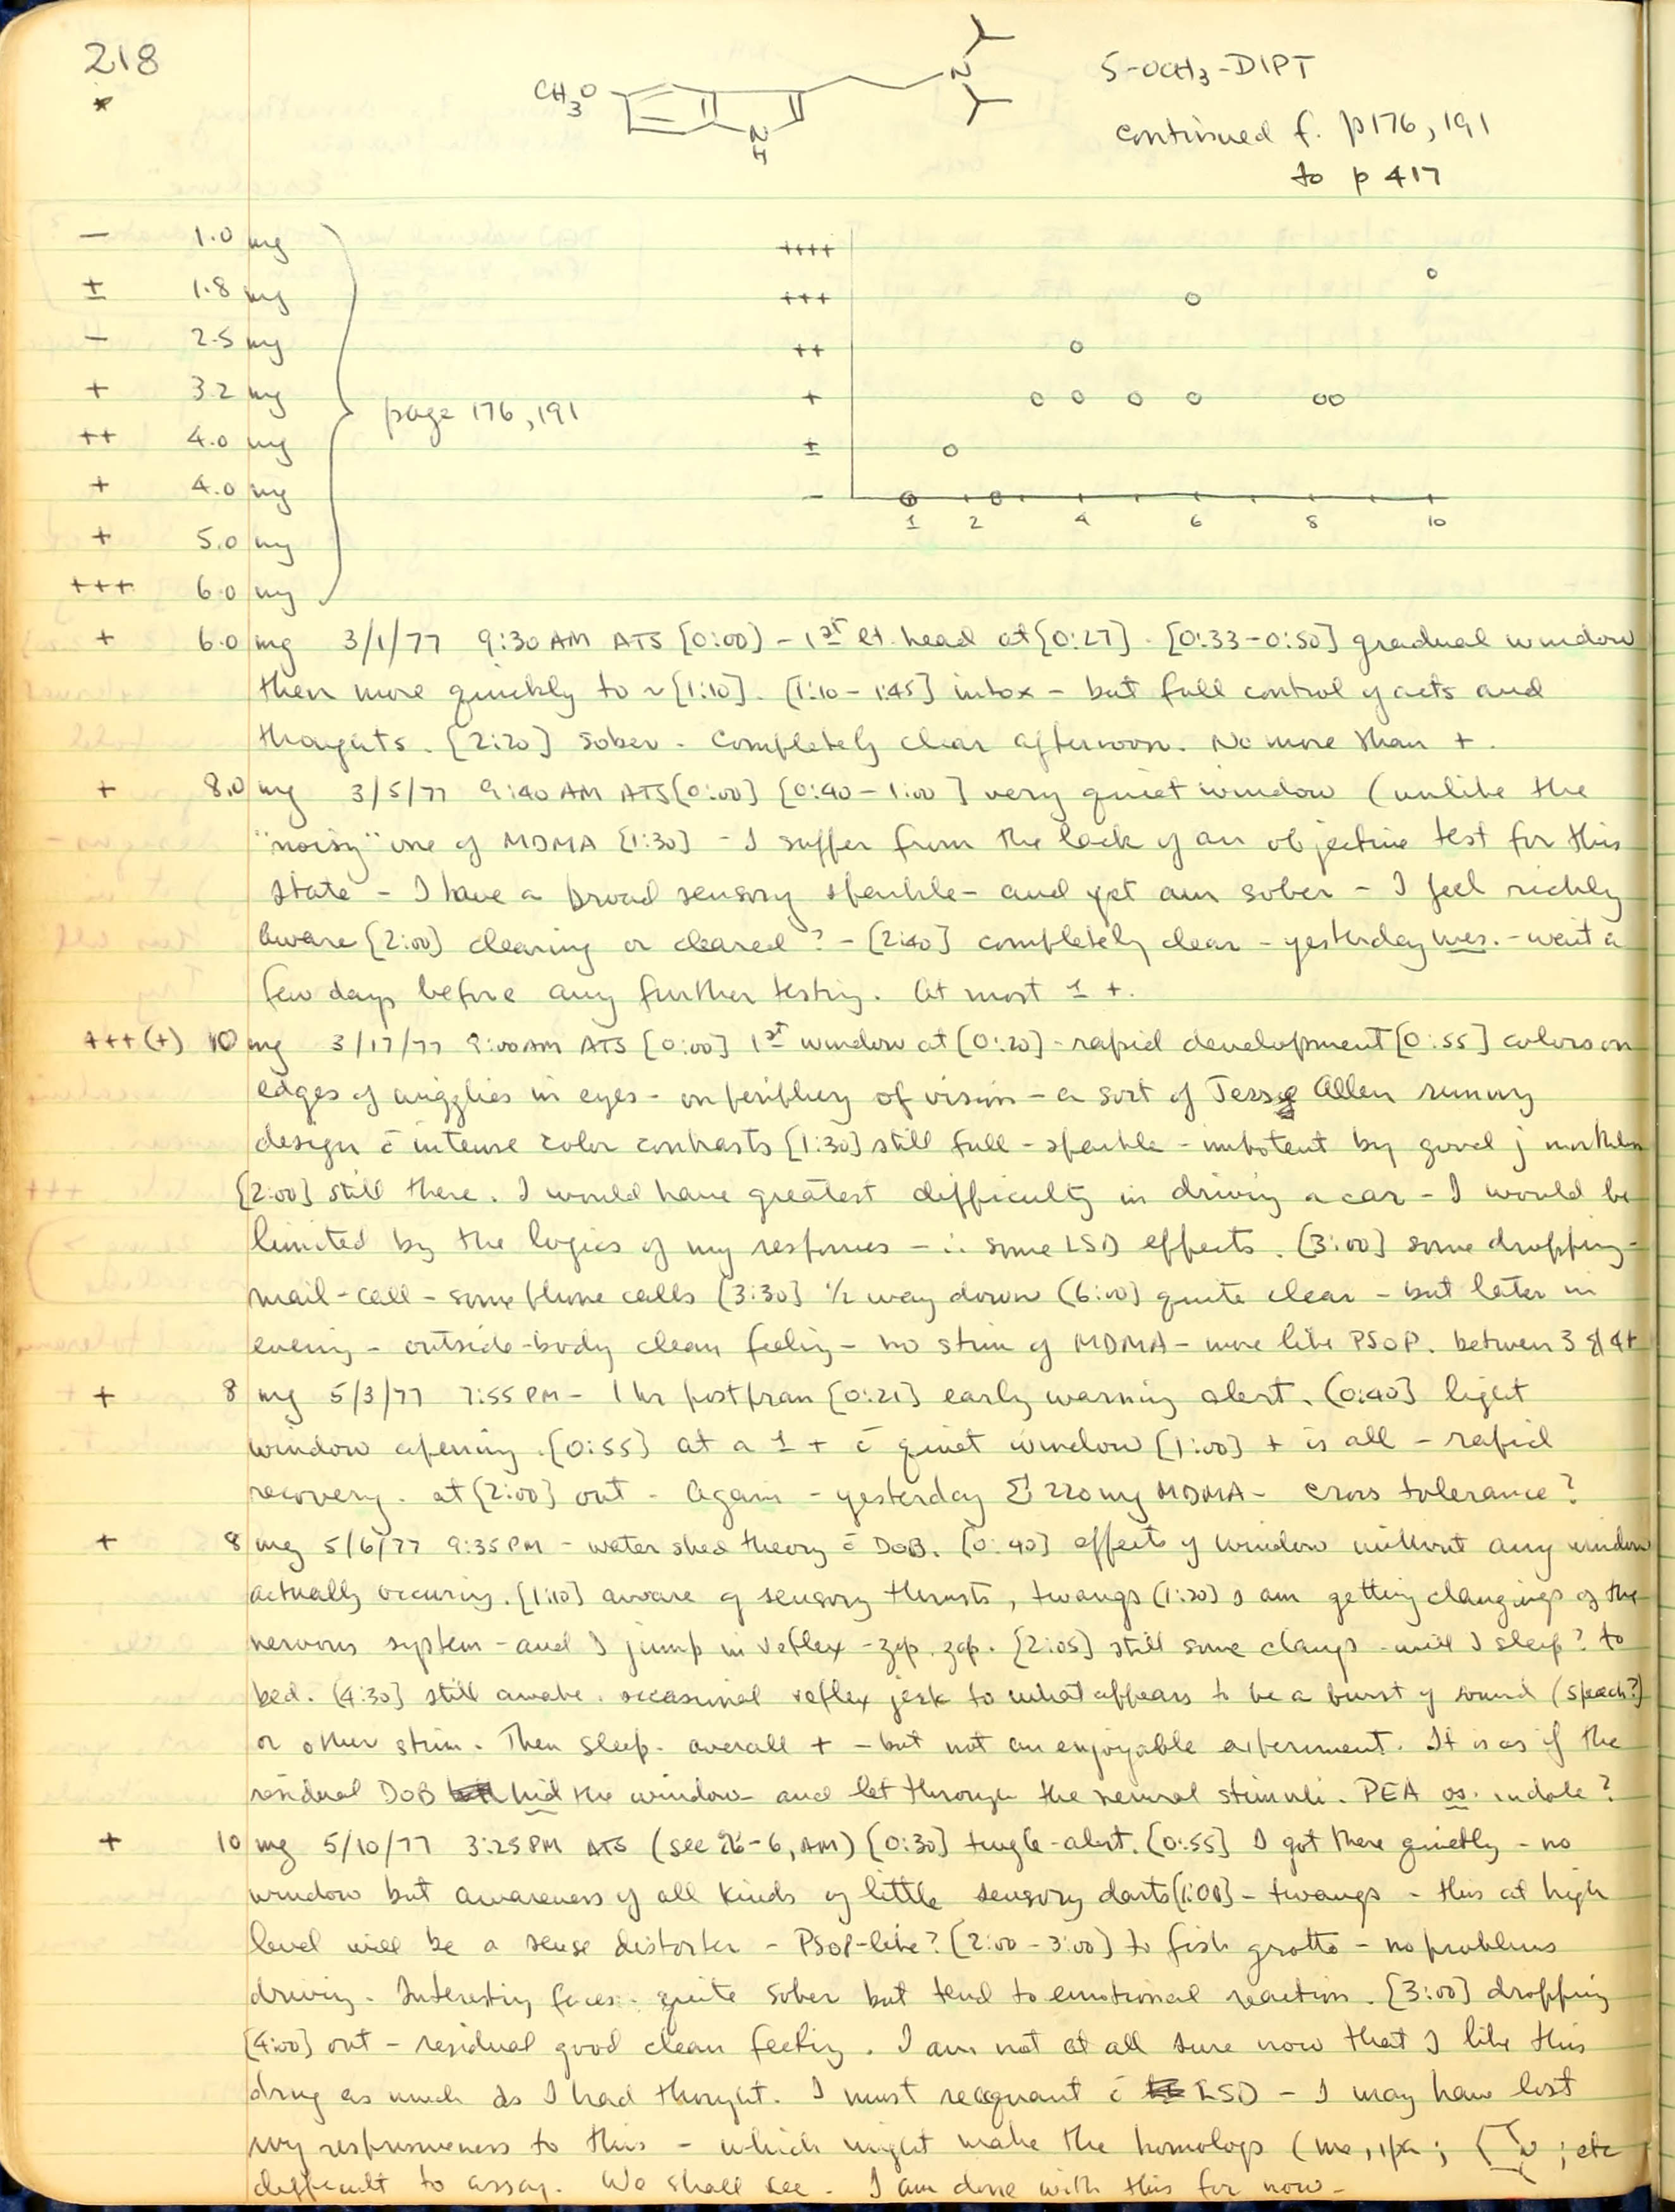 218
*
CH3O
N
H
N
5-OCH3-DIPT
continued f. p176, 191
to p 417
— 1.0 mg
± 1.8 mg
— 2.5 mg
+ 3.2 mg
++ 4.0 mg
+ 4.0 mg
+ 5.0 mg
+++ 6.0 mg
page 176, 191
++++
+++
++
+
±
—
1 2 4 6 8 10
+ 6.0 mg 3/1/77 9:30 AM ATS [0:00] - 1st lt. head at [0:27]. [0:33-0:50] gradual window
then more quickly to ~[1:10]. [1:10-1:45] intox - but full control of acts and
thoughts. [2:20] sober. Completely clear afternoon. No more than +.
+ 8.0 mg 3/5/77 9:40 AM ATS [0:00] [0:40-1:00] very quiet window (unlike the
"noisy" one of MDMA [1:30] - I suffer from the lack of an objective test for this
state - I have a broad sensory sparkle - and yet am sober - I feel richly
aware [2:00] clearing or cleared? - [2:40] completely clear - yesterday mes. - wait a
few days before any further testing. At most 1 +.
+++(+) 10 mg 3/17/77 9:00 AM ATS [0:00] 1st window at [0:20] - rapid development [0:55] colors on
edges of wigglies in eyes - on periphery of vision - a sort of Jesse Allen
design c̄ intense color contrasts [1:30] still full - sparkle - impotent by good j
[2:00] still there. I would have greatest difficulty in driving a car - I would be
limited by the logics of my responses - ∴ some LSD effects. [3:00] some dropping -
mail-call - some phone calls [3:30] 1/2 way down (6:00] quite clear - but later in
evening - outside-body clean feeling - no stim of MDMA - more like PSOP. between 3 & 4+
+ 8 mg 5/3/77 7:55 PM - 1 hr postpran [0:21] early warning alert. (0:40] light
window opening. [0:55] at a 1 + c̄ quiet window [1:00] + is all - rapid
recovery. at [2:00] out. Again - yesterday Σ 220 mg MDMA - cross tolerance?
+ 8 mg 5/6/77 9:35 PM - water shed theory c̄ DOB. [0:40] effects of window without any window
actually occuring. [1:10] aware of sensory thrusts, twangs (1:20) I am getting clangings of the
nervous system - and I jump in reflex - zip, zap. [2:05] still some clangs - will I sleep? to
bed. (4:30] still awake. occasional reflex jerk to what appears to be a burst of sound (speech?)
or other stim. Then sleep. overall + - but not an enjoyable experiment. It is as if the
residual DOB hid the window and let through the neural stimuli. PEA vs. indole?
+ 10 mg 5/10/77 3:25 PM ATS (see 26-6, AM) [0:30] twinge-alert. [0:55] I got there quietly - no
window but awareness of all kinds of little sensory darts [1:00] - twangs - this at high
level will be a sense distorter - PSOP-like? [2:00-3:00] to fish grotto - no problems
driving. Interesting faces. quite sober but tend to emotional reaction. [3:00] dropping
[4:00] out - residual good clean feeling. I am not at all sure now that I like this
drug as much as I had thought. I must reacquaint c̄ LSD - I may have lost
my responsiveness to this - which might make the homologs (me, ipr; N ; etc
difficult to assay. We shall see. I am done with this for now -